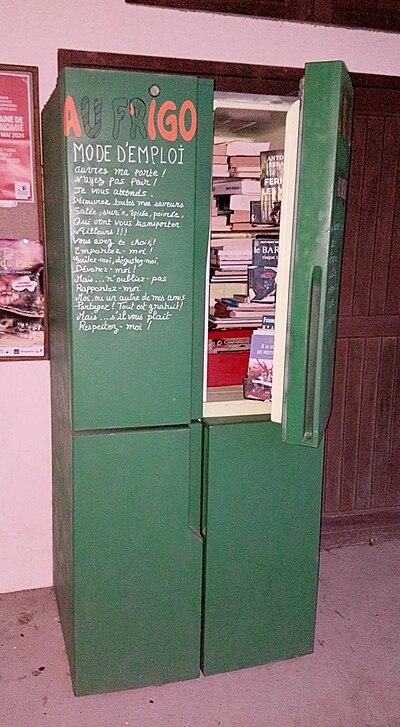 AU FRIGO
MODE D'EMPLOÏ
Ouvres ma porte !
N'ayez pas peur !
Je vous attends.
Découvrez toutes mes saveurs
Salée, sucrée, épicée, poivrée,
Qui vont vous transporter
Ailleurs !!!
Vous avez le choix !
Emportez-moi !
Goûtez-moi, dégustez-moi,
Dévorez-moi !
Mais... n'oubliez-pas
Rapportez-moi
Moi, ou un autre de mes amis
Partagez ! Tout est gratuit !
Mais... s'il vous plait
Respectez-moi !
MAI 2024